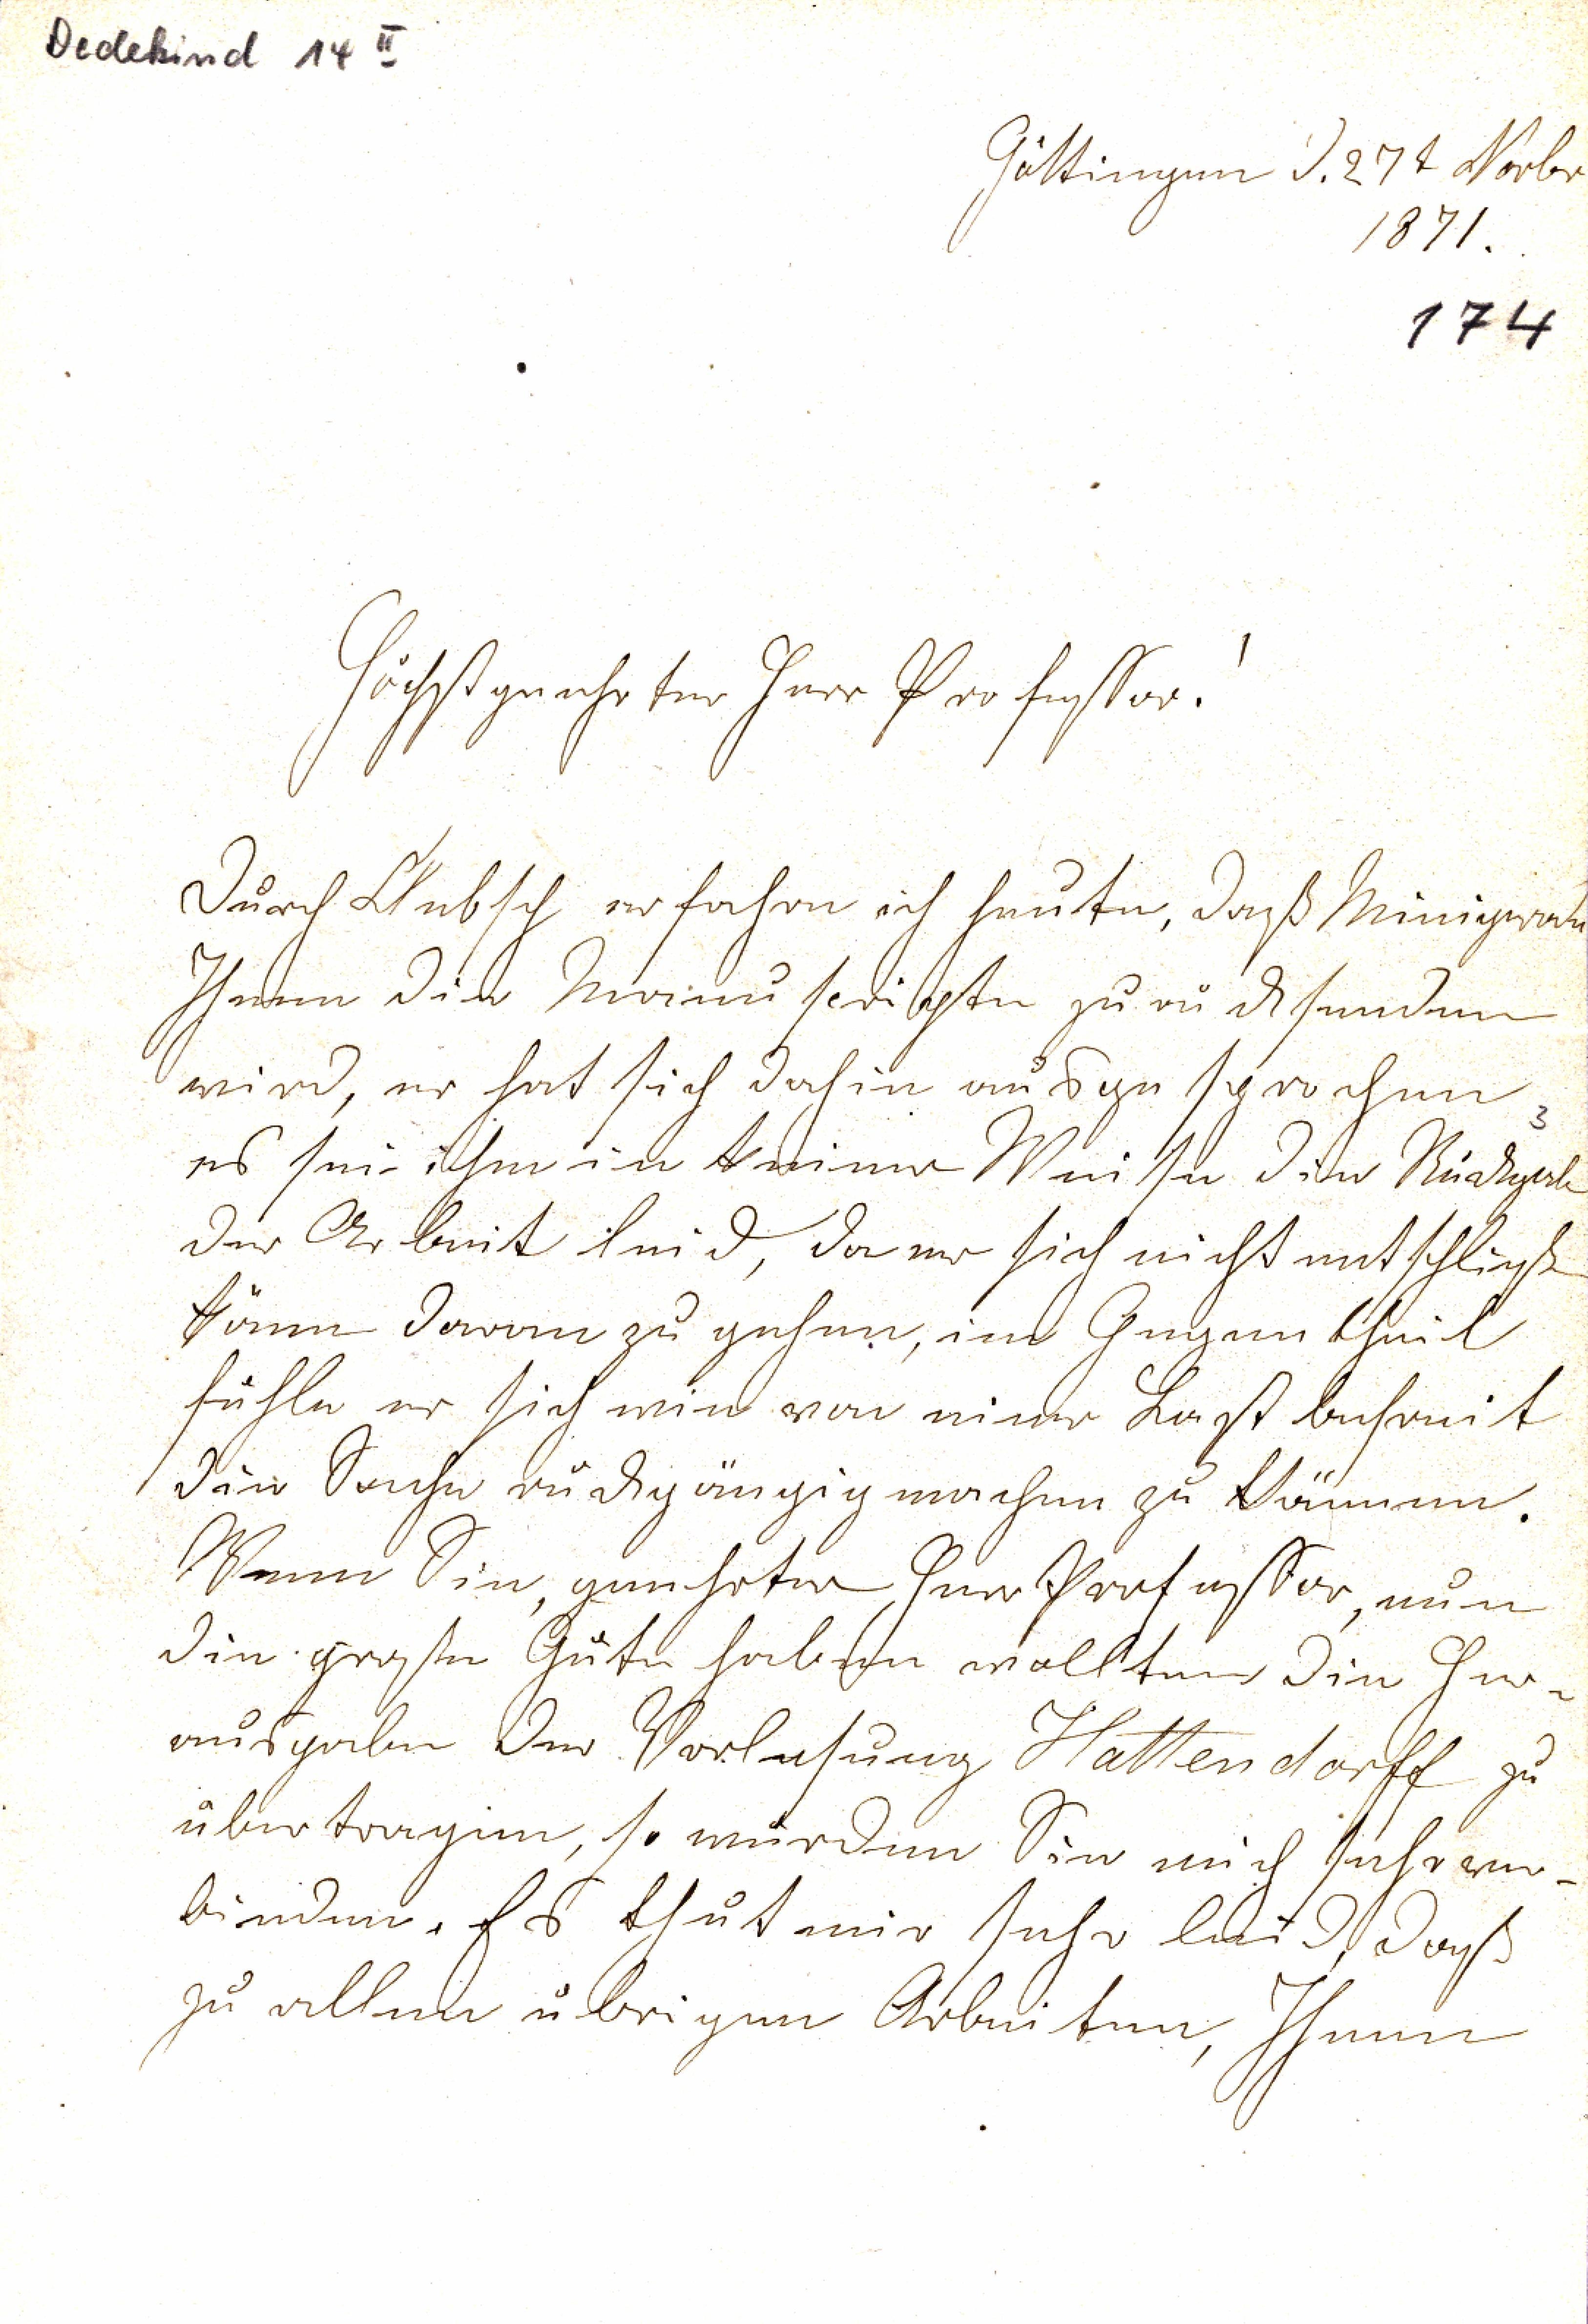 Dedekind 14 II
Göttingen d. 27t Novbr
1871.
174
Höchstgeehrter Herr Professor!
Durch Clebsch erfahre ich heute, daß Minigerode
Ihnen die Manuscripte zurücksenden
wird, er hat sich dahin ausgesprochen
3
es sei ihm in keiner Weise die Rückgabe
der Arbeit leid, da er sich nicht entschließen
könne daran zu gehen, im Gegentheil
fühle er sich wie von einer Last befreit
die Sache rückgängig machen zu können.
Wenn Sie, geehrter Herr Professor, nun
die große Güte haben wollten die Her-
ausgabe der Vorlesung Hattendorff zu
übertragen, so würden Sie mich sehr ver-
binden. Es thut mir sehr leid, daß
zu allen übrigen Arbeiten, Ihnen